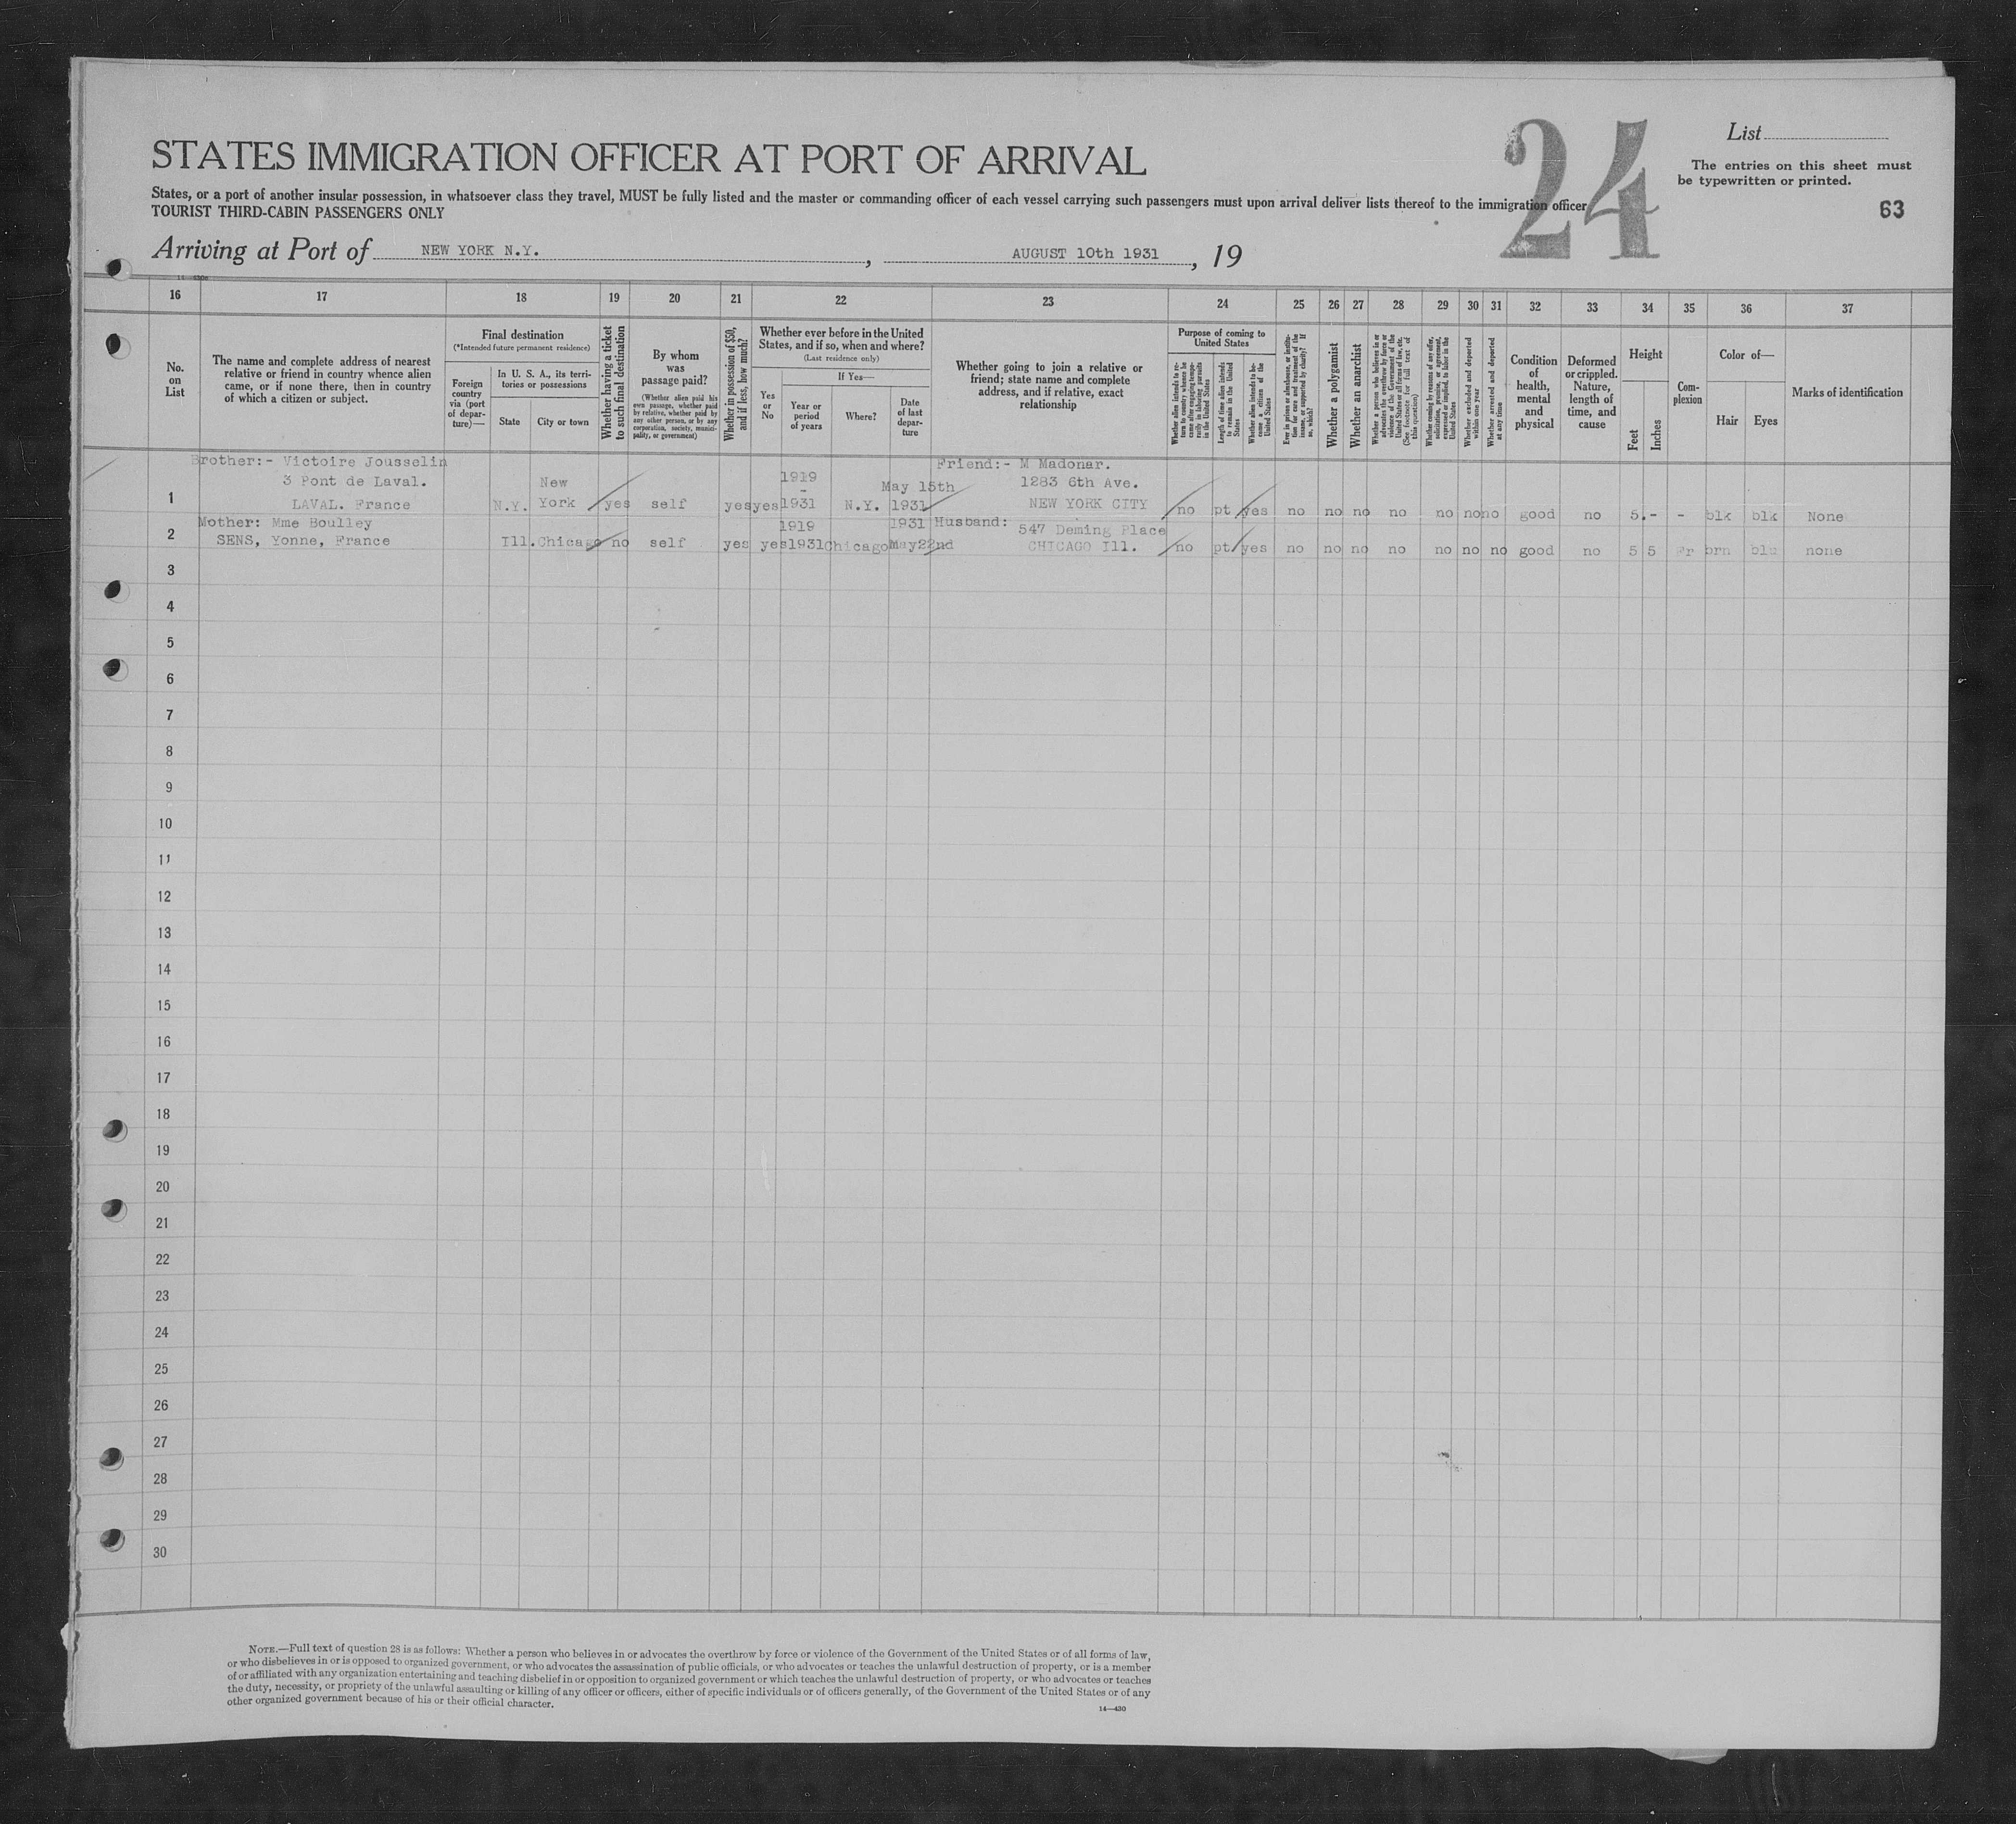 STATES IMMIGRATION OFFICER AT PORT OF ARRIVAL
24
List
The entries on this sheet must
be typewritten or printed.
States, or a port of another insular possession, in whatsoever class they travel, MUST be fully listed and the master or commanding officer of each vessel carrying such passengers must upon arrival deliver lists thereof to the immigration officer
TOURIST THIRD-CABIN PASSENGERS ONLY
63
Arriving at Port of NEW YORK N.Y. , AUGUST 10th 1931 , 19
16 17 18 19 20 21 22 23 24 25 26 27 28 29 30 31 32 33 34 35 36 37
No.
on
List
The name and complete address of nearest
relative or friend in country whence alien
came, or if none there, then in country
of which a citizen or subject.
Final destination
(*Intended future permanent residence)
Foreign
country
via (port
of depar-
ture)—
In U. S. A., its terri-
tories or possessions
State
City or town
Whether having a ticket
to such final destination
By whom
was
passage paid?
(Whether alien paid his
own passage, whether paid
by relative, whether paid by
any other person, or by any
corporation, society, munici-
pality, or government)
Whether in possession of $50,
and if less, how much?
Whether ever before in the United
States, and if so, when and where?
(Last residence only)
Yes
or
No
If Yes—
Year or
period
of years
Where?
Date
of last
depar-
ture
Whether going to join a relative or
friend; state name and complete
address, and if relative, exact
relationship
Purpose of coming to
United States
Whether alien intends to re-
turn to country whence he
came after engaging tempo-
rarily in laboring pursuits
in the United States
Length of time alien intends
to remain in the United
States
Whether alien intends to be-
come a citizen of the
United States
Ever in prison or almshouse, or institu-
tion for care and treatment of the
insane, or supported by charity? If
so, which?
Whether a polygamist
Whether an anarchist
Whether a person who believes in or
advocates the overthrow by force or
violence of the Government of the
United States or all forms of law, etc.
(See footnote for full text of
this question)
Whether coming by reasons of any offer,
solicitation, promise, or agreement,
expressed or implied, to labor in the
United States
Whether excluded and deported
within one year
Whether arrested and deported
at any time
Condition
of
health,
mental
and
physical
Deformed
or crippled.
Nature,
length of
time, and
cause
Height
Feet
Inches
Com-
plexion
Color of—
Hair
Eyes
Marks of identification
Brother:- Victoire Jousselin
3 Pont de Laval.
New
1919
-
May 15th
Friend:- M Madonar.
1283 6th Ave.
1 LAVAL. France N.Y. York yes self yes yes 1931 N.Y. 1931 NEW YORK CITY no pt yes no no no no no no no good no 5.- - blk blk None
Mother: Mme Boulley 1919 1931 Husband: 547 Deming Place
2 SENS, Yonne, France Ill. Chicago no self yes yes 1931 Chicago May22nd CHICAGO Ill. no pt yes no no no no no no no good no 5 5 Fr brn blu none
3
4
5
6
7
8
9
10
11
12
13
14
15
16
17
18
19
20
21
22
23
24
25
26
27
28
29
30
NOTE.—Full text of question 28 is as follows: Whether a person who believes in or advocates the overthrow by force or violence of the Government of the United States or of all forms of law,
or who disbelieves in or is opposed to organized government, or who advocates the assassination of public officials, or who advocates or teaches the unlawful destruction of property, or is a member
of or affiliated with any organization entertaining and teaching disbelief in or opposition to organized government or which teaches the unlawful destruction of property, or who advocates or teaches
the duty, necessity, or propriety of the unlawful assaulting or killing of any officer or officers, either of specific individuals or of officers generally, of the Government of the United States or of any
other organized government because of his or their official character.
14—430